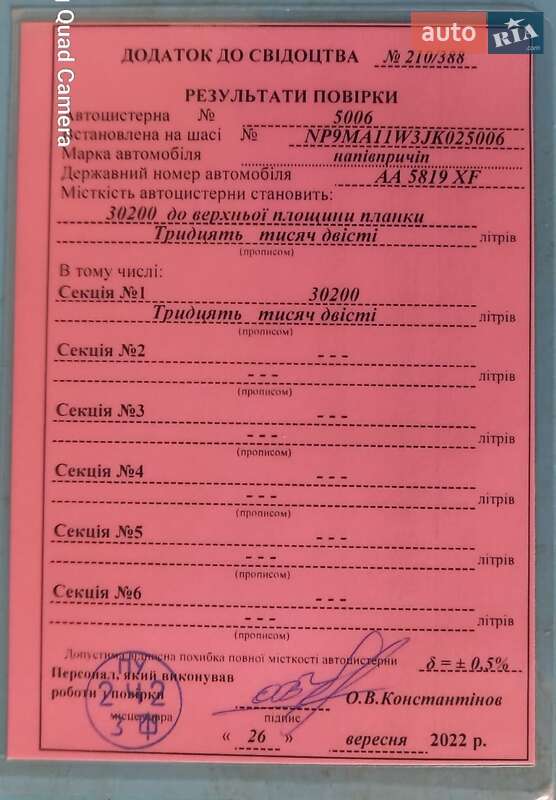 auto RIA .com
Quad Camera
ДОДАТОК ДО СВІДОЦТВА № 210/388
РЕЗУЛЬТАТИ ПОВІРКИ
Автоцистерна № 5006
Встановлена на шасі № NP9MA11W3JK025006
Марка автомобіля напівпричіп
Державний номер автомобіля АА 5819 XF
Місткість автоцистерни становить:
30200 до верхньої площини планки
Тридцять тисяч двісті літрів
(прописом)
В тому числі:
Секція №1 30200
Тридцять тисяч двісті літрів
(прописом)
Секція №2 - - -
- - - літрів
(прописом)
Секція №3 - - -
- - - літрів
(прописом)
Секція №4 - - -
- - - літрів
(прописом)
Секція №5 - - -
- - - літрів
(прописом)
Секція №6 - - -
- - - літрів
(прописом)
Допустима відносна похибка повної місткості автоцистерни δ = ± 0,5%
Персонал, який виконував
роботи у повірки О.В.Константінов
підпис
« 26 » вересня 2022 р.